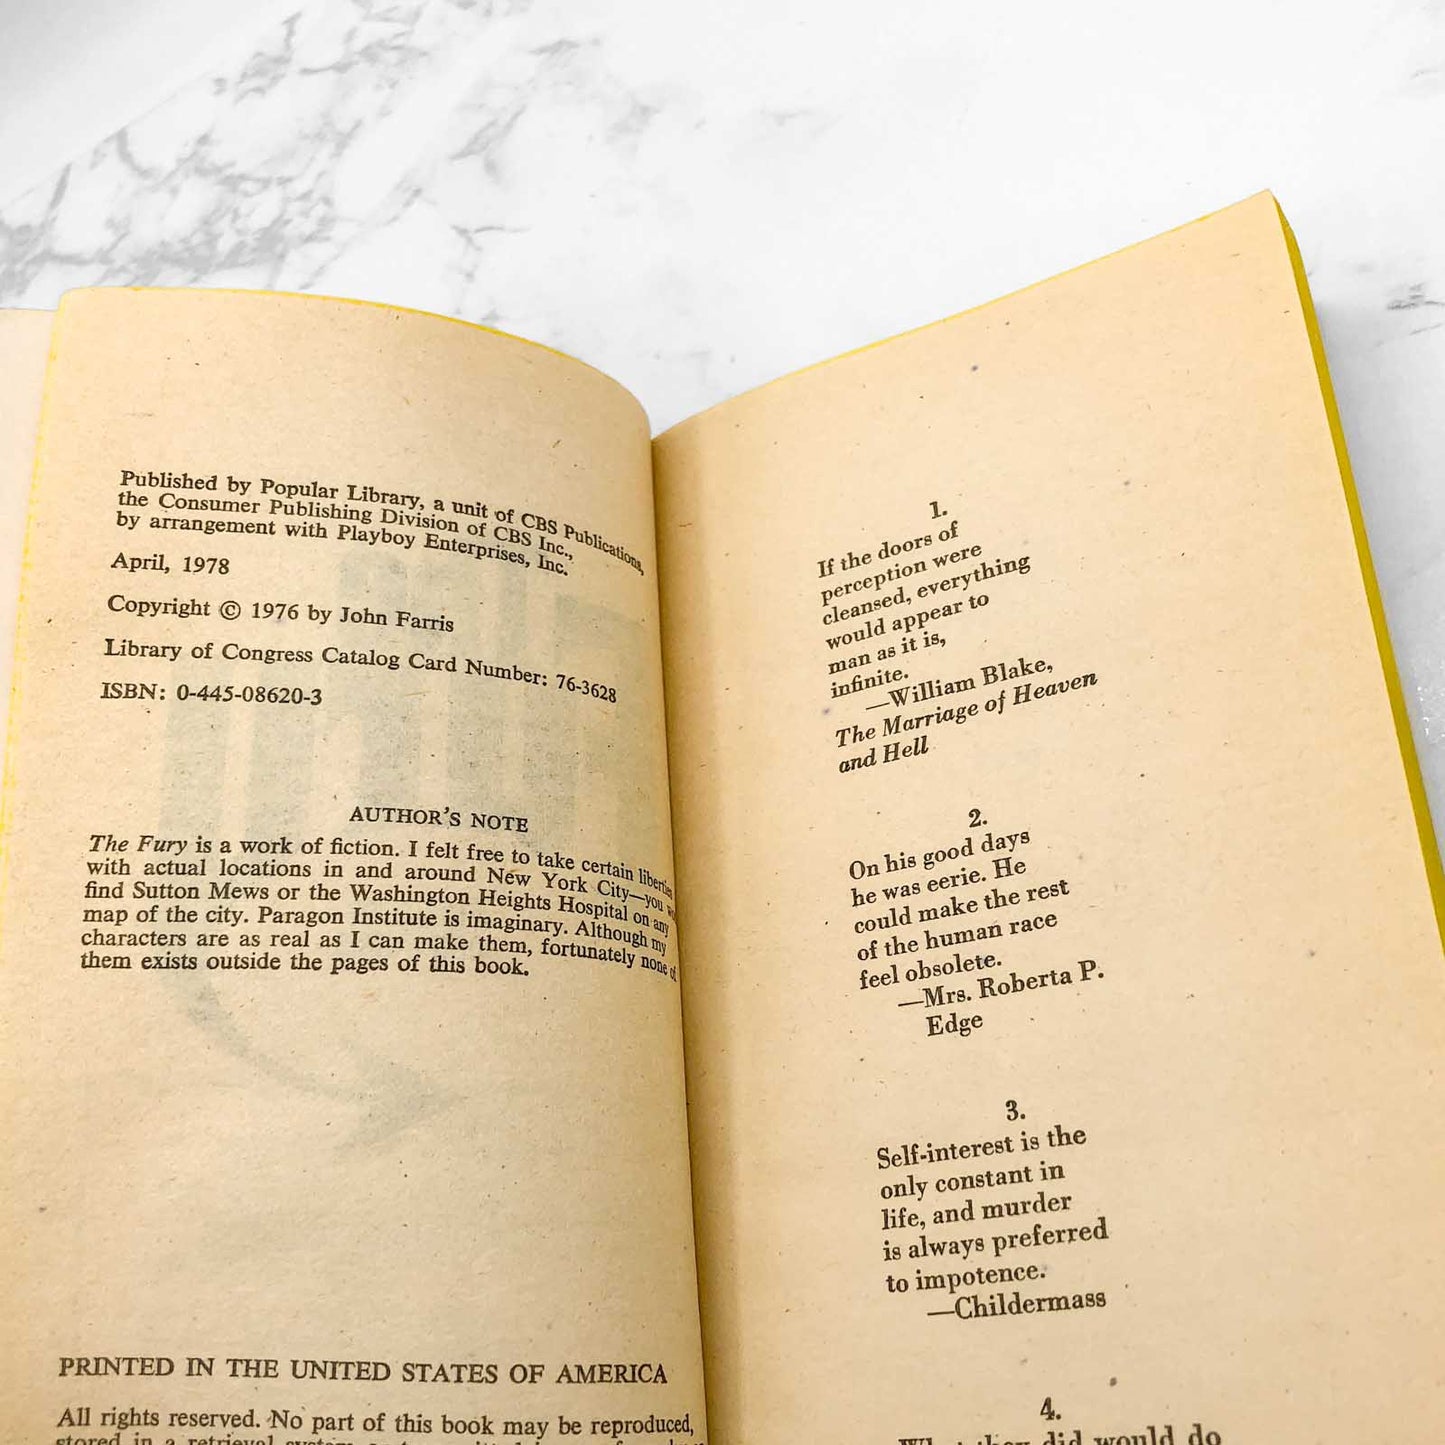 Published by Popular Library, a unit of CBS Publications,
the Consumer Publishing Division of CBS Inc.,
by arrangement with Playboy Enterprises, Inc.
April, 1978
Copyright © 1976 by John Farris
Library of Congress Catalog Card Number: 76-3628
ISBN: 0-445-08620-3
AUTHOR'S NOTE
The Fury is a work of fiction. I felt free to take certain liberties
with actual locations in and around New York City—you
find Sutton Mews or the Washington Heights Hospital on any
map of the city. Paragon Institute is imaginary. Although my
characters are as real as I can make them, fortunately none of
them exists outside the pages of this book.
PRINTED IN THE UNITED STATES OF AMERICA
All rights reserved. No part of this book may be reproduced,
stored in a retrieval system
1.
If the doors of
perception were
cleansed, everything
would appear to
man as it is,
infinite.
—William Blake,
The Marriage of Heaven
and Hell
2.
On his good days
he was eerie. He
could make the rest
of the human race
feel obsolete.
—Mrs. Roberta P.
Edge
3.
Self-interest is the
only constant in
life, and murder
is always preferred
to impotence.
—Childermass
4.
What they did would do